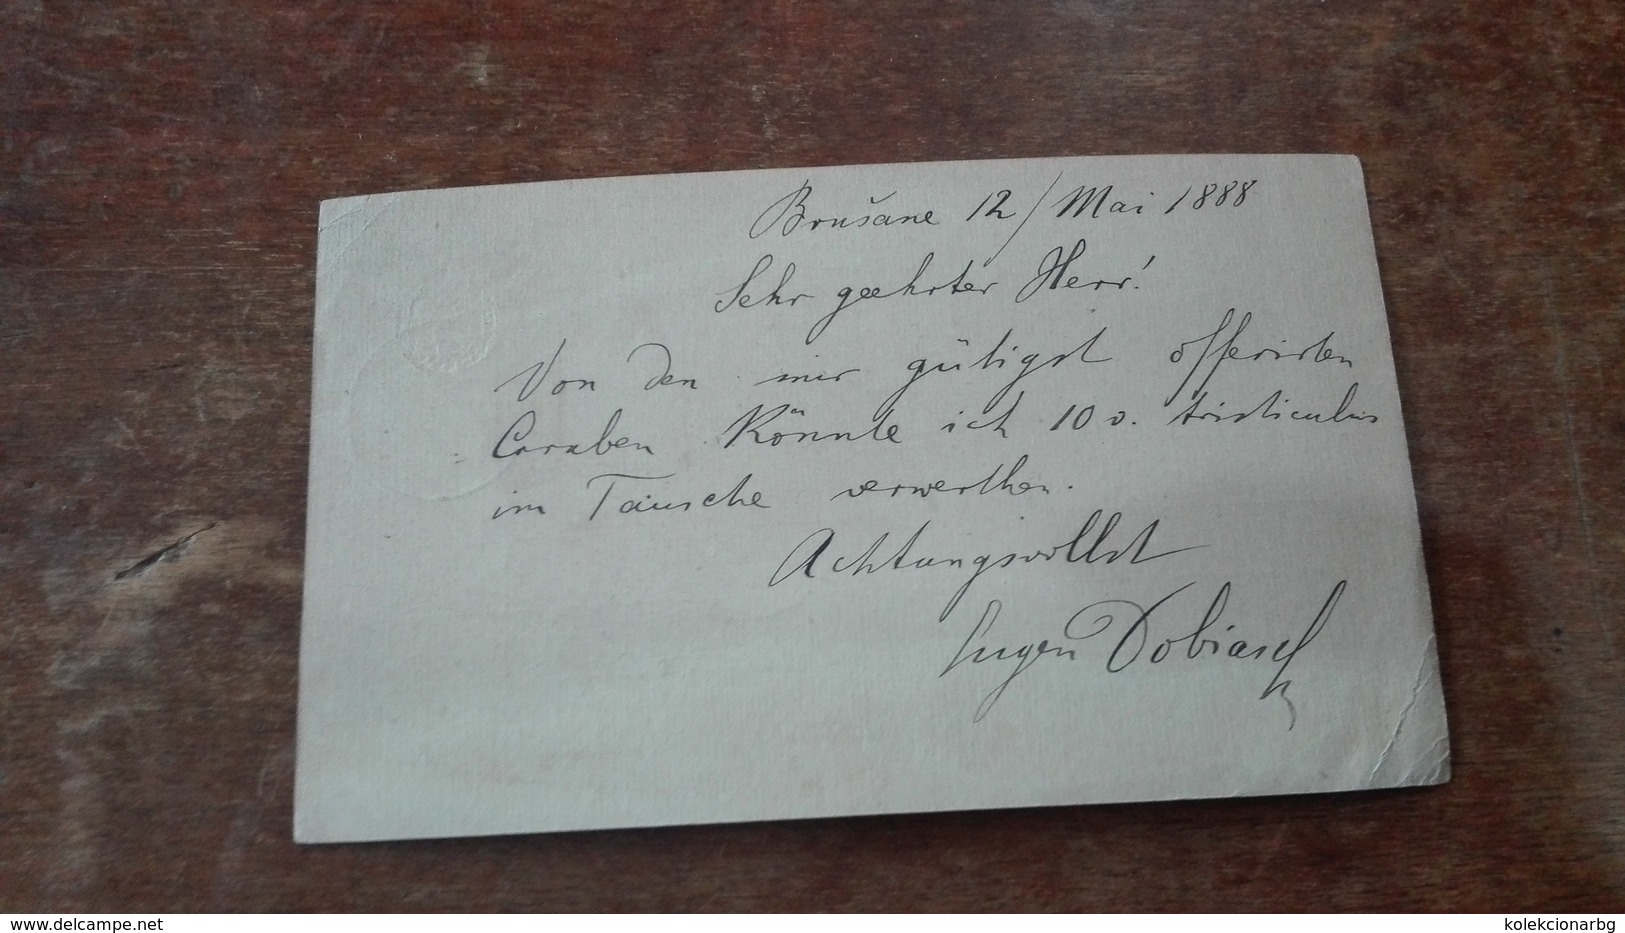 Brušane 12/ Mai 1888
Sehr geehrter Herr!
Von den mir gütigst offerirten
Caraben könnte ich 10 v. tristiculus
im Tausche verwerthen.
Achtungsvollst
Eugen Dobiasch
www.delcampe.net
kolekcionarbg